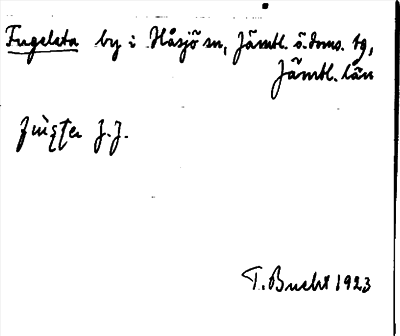 Fugelsta by i Håsjö sn, Jämtl. ö. doms. tg,
Jämtl. län
J.J.
T. Bucht 1923